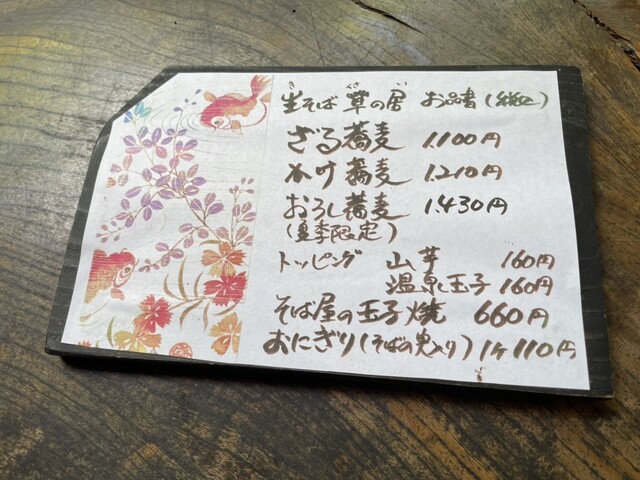 生そば 草の居 お品書(税込)
きくさい
ざる蕎麦 1.100円
かけ蕎麦 1.210円
おろし蕎麦 1.430円
(夏季限定)
トッピング 山芋 160円
温泉玉子 160円
そば屋の玉子焼 660円
おにぎり(そばの実入り)1ケ110円